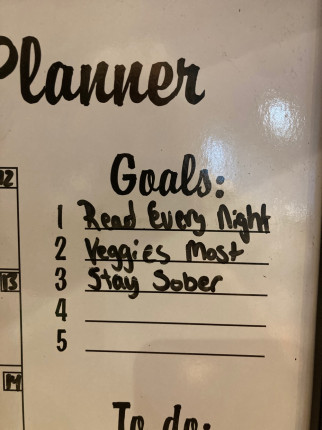 Planner
12
Goals:
1 Read Every Night
2 Veggies Most
3 Stay Sober
13
4
5
14
To do: